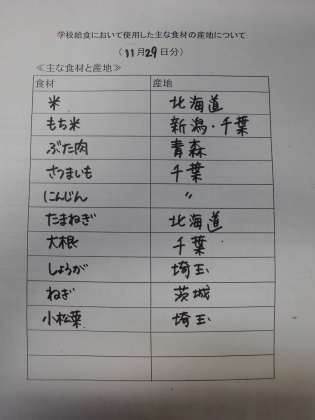 学校給食において使用した主な食材の産地について
（11月29日分）
≪主な食材と産地≫
食材 産地
米 北海道
もち米 新潟・千葉
ぶた肉 青森
さつまいも 千葉
にんじん 〃
たまねぎ 北海道
大根 千葉
しょうが 埼玉
ねぎ 茨城
小松菜 埼玉